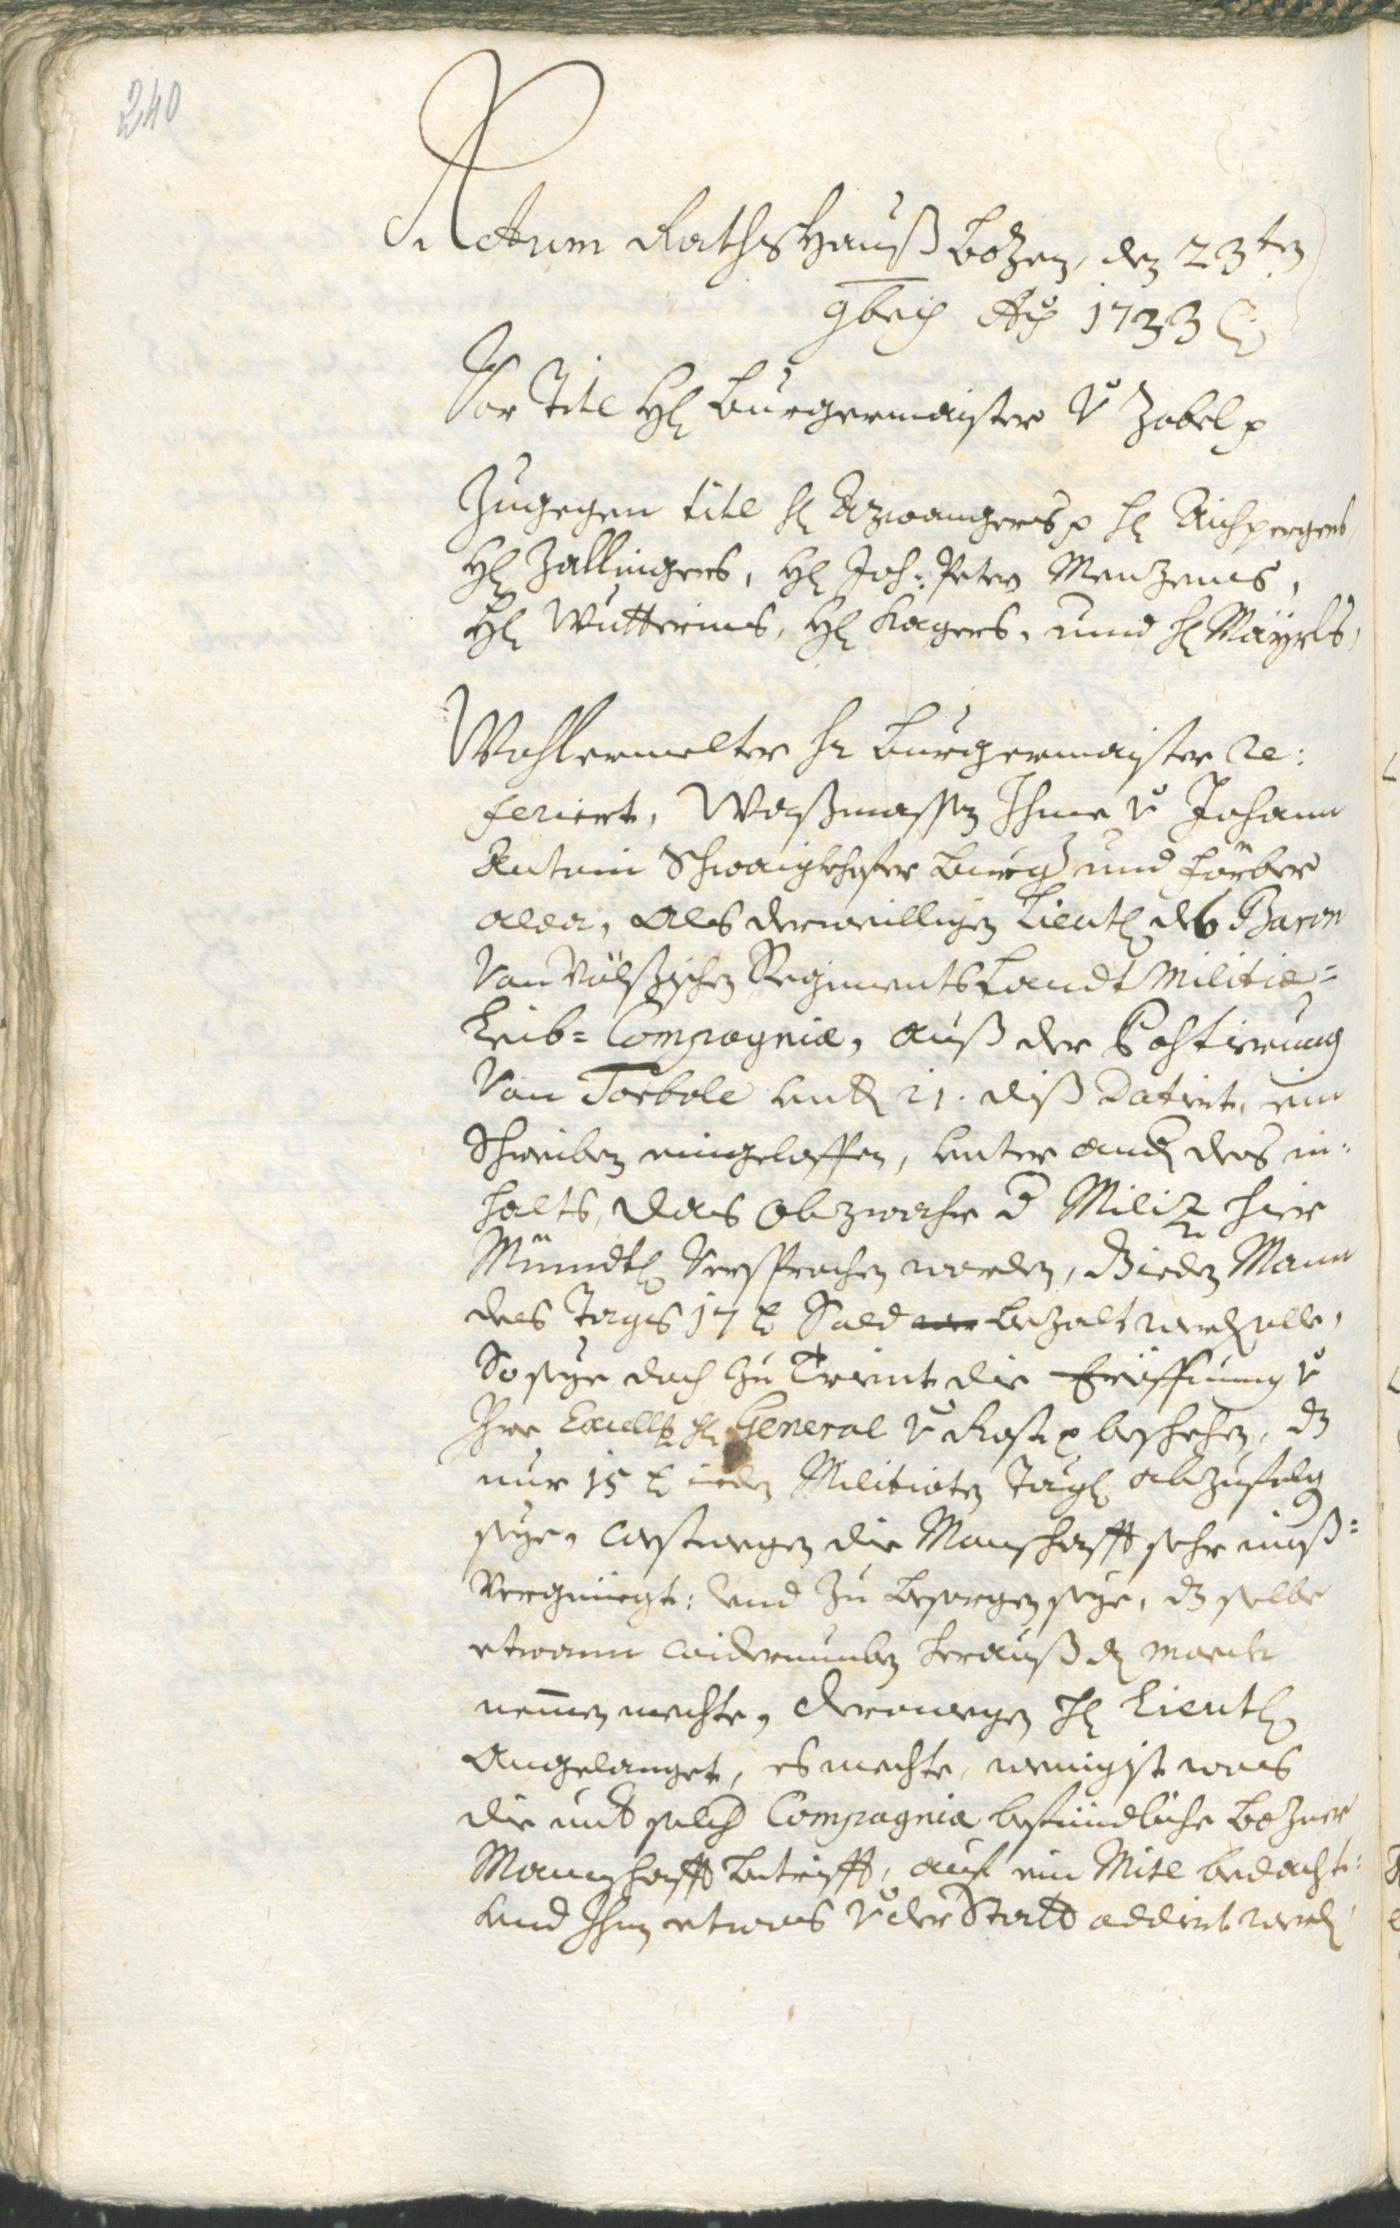 240
Actum Rathshauß Bozen, den 23ten
9bris Ao 1733
Vor Titl H: Burgermaister v: Zobel p
Zugegen titl H: Azwangers p H: Aichpergers,
H: Zallingers, H: Joh: Peter Menzens,
H: Wutterins, H: Kagers, unnd H: Mayrls,
Wohlermelter Hr Burgermaister re:
feriert, Waßmassen Ihme v: Johann
Antoni Schwaigkhofer Burg: und Färber
alda, als derweilligen Lieut: des Baron
Von Völßischen Regiments Landt Militia=
Leib= Compagnia, auß der Postierung
Von Torbole unterm 21. diß Datirt, ein
Schreiben eingeloffen, unter andern des in=
halts, das obzwahr der Miliz hier
Mündtl: Versprochen worden, das ieden Mann
des Tags 17 x Sold bezalt werden solle,
So seye doch zu Trient die Eröffnung v:
Ihro Excellz H: General v: Rost p beschehen, dz
nur 15 x ieden Militioten Tägl: abzufolgen
seye, Destwegen die Manschafft sehr miß=
vergniegt: und zu besorgen seye, dz selbe
etwann widerumben herauß den march
nemmen mechte, Derowegen H: Lieut:
Angelanget, es mechte, wenigist was
die unter solcher Compagnia befündtliche Bozner
Manschafft betrifft, auf ein Mitl bedacht:
und Ihnen etwas v: der Statt addirt werden